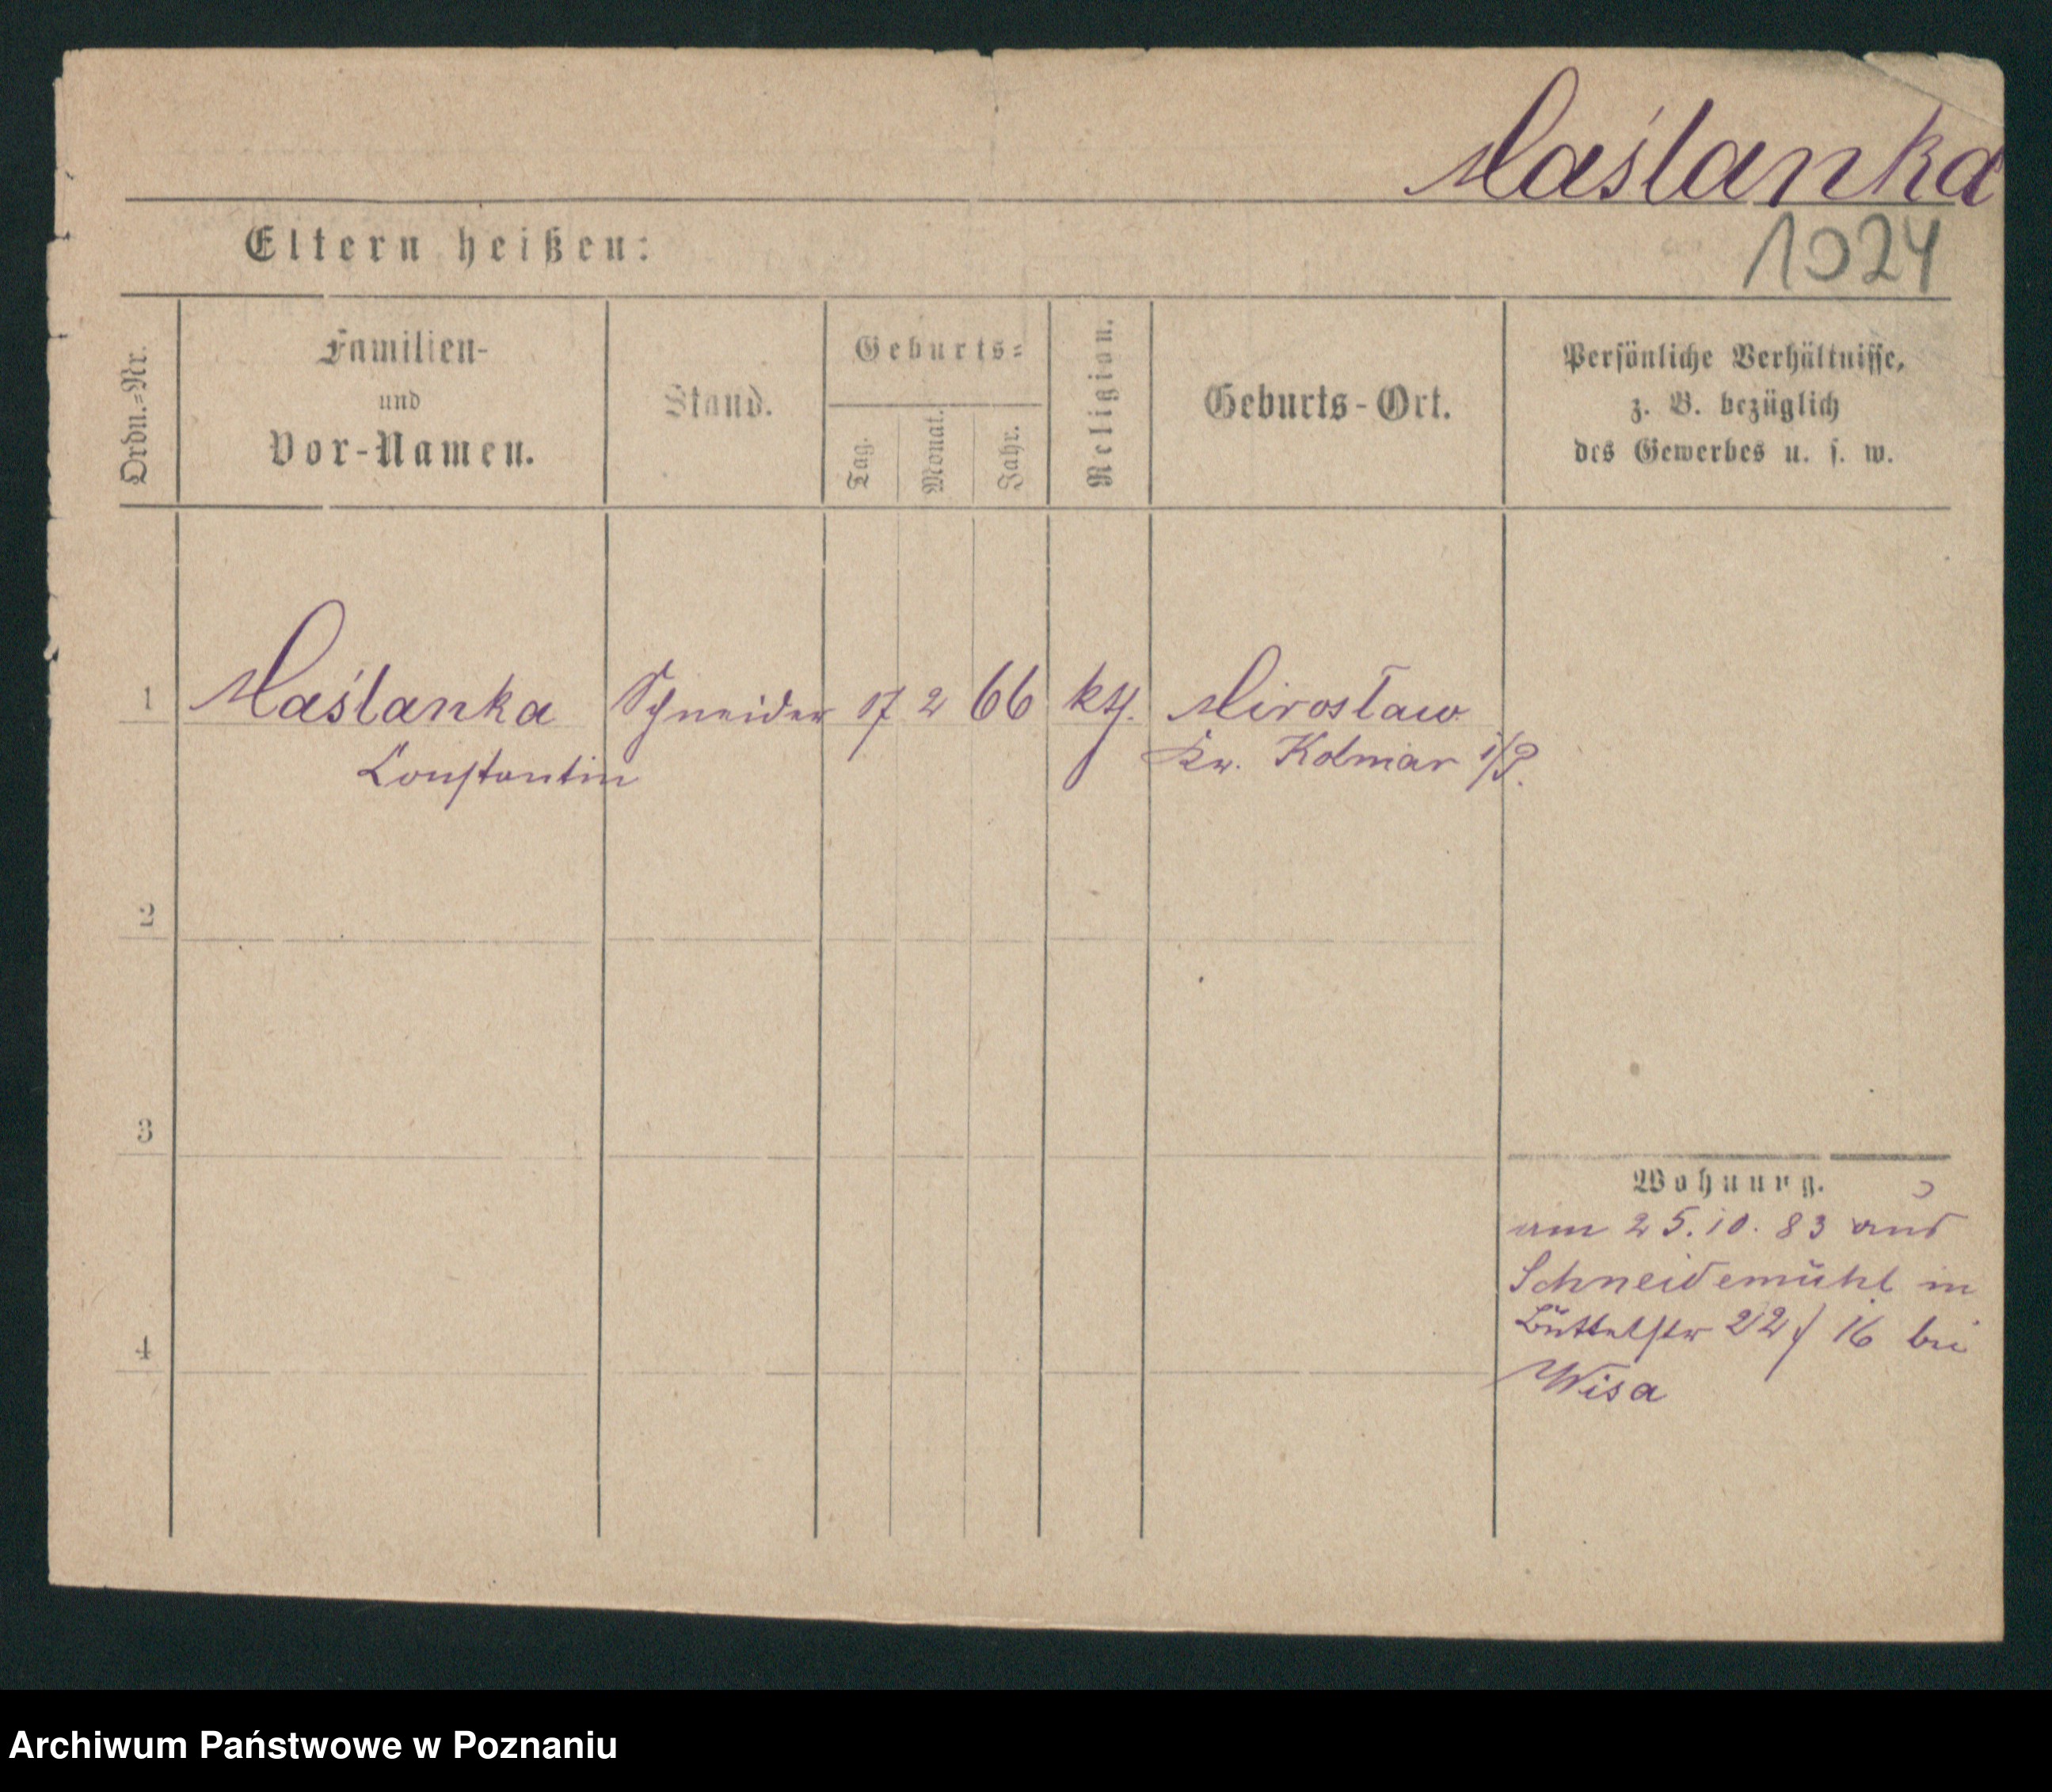 Maślanka
Eltern heißen:
1024
Ordn.-Nr.
Familien-
und
Vor-Namen.
Stand.
Geburts-
Tag.
Monat.
Jahr.
Religion.
Geburts-Ort.
Persönliche Verhältnisse,
z. B. bezüglich
des Gewerbes u. s. w.
1 Maślanka Schneider 17 2 66 kth. Mirosław
Constantin Kr. Kolmar i/P.
2
3
4
Wohnung.
am 25.10.83 aus
Schneidemühl in
Büttelstr 22/ 16 bei
Wisa
Archiwum Państwowe w Poznaniu